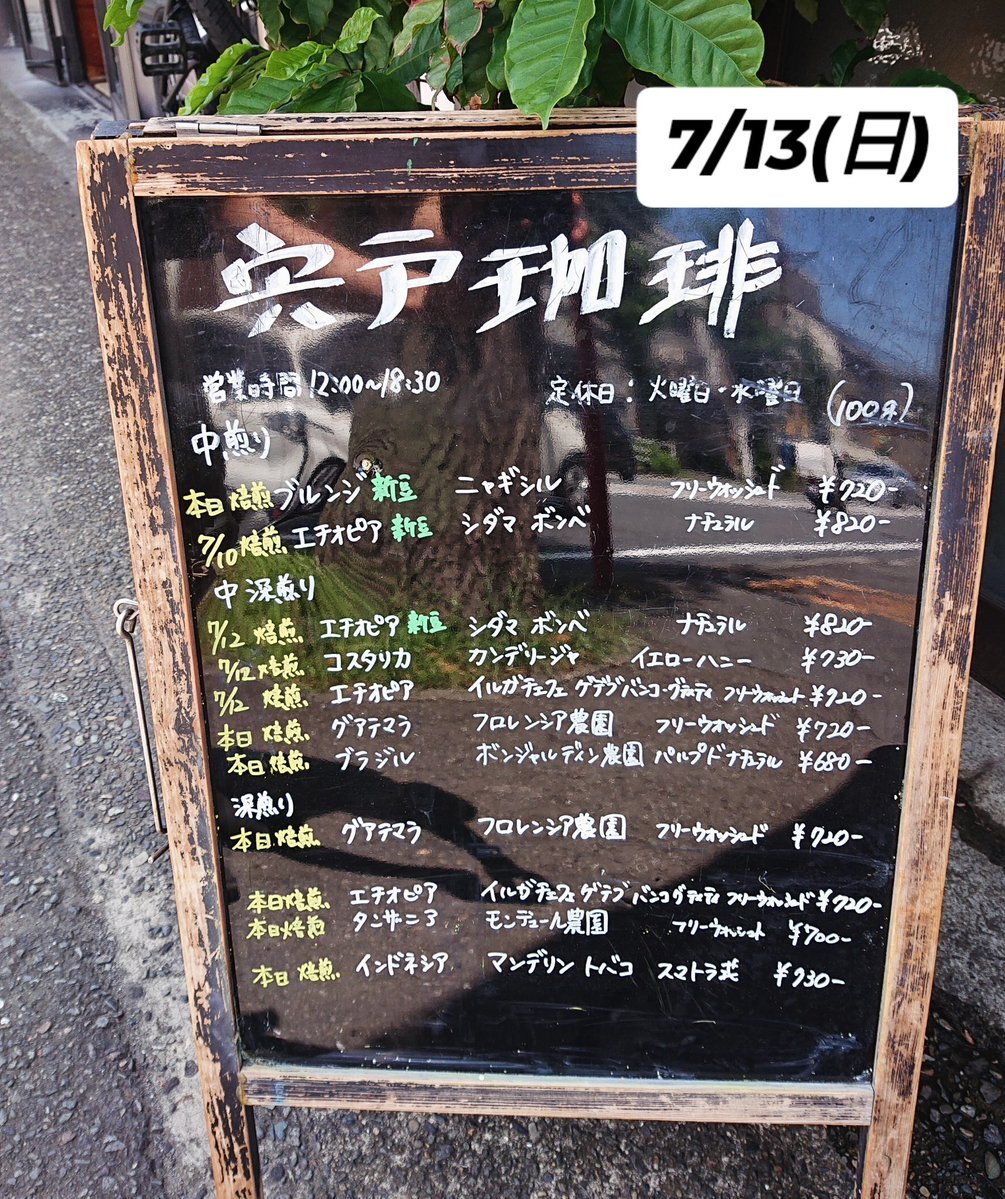 7/13(日)
宍戸珈琲
営業時間 12:00~18:30 定休日:火曜日・水曜日 (100g)
中煎り
本日焙煎 ブルンジ 新豆 ニャギシル フリーウォッシュド ¥720-
7/10焙煎 エチオピア 新豆 シダマ ボンベ ナチュラル ¥820-
中深煎り
7/12焙煎 エチオピア 新豆 シダマ ボンベ ナチュラル ¥820-
7/12焙煎 コスタリカ カンデリージャ イエローハニー ¥730-
7/12焙煎 エチオピア イルガチェフェ ゲデブ バンコ・グティティ フリーウォッシュド ¥720-
本日焙煎 グアテマラ フロレンシア農園 フリーウォッシュド ¥720-
本日焙煎 ブラジル ボンジャルディン農園 パルプドナチュラル ¥680-
深煎り
本日焙煎 グアテマラ フロレンシア農園 フリーウォッシュド ¥720-
本日焙煎 エチオピア イルガチェフェ ゲデブ バンコ グティティ フリーウォッシュド ¥720-
本日焙煎 タンザニア モンデュール農園 フリーウォッシュド ¥700-
本日焙煎 インドネシア マンデリン トバコ スマトラ式 ¥730-